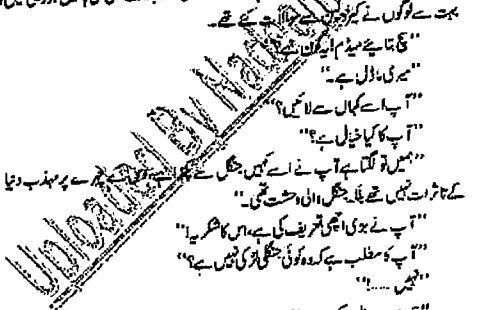 بہت سے لوگوں نے کیز سے سوالات کئے تھے۔
"سچ بتایئے میڈم! یہ کون ہے؟"
"میری ماڈل ہے۔"
"آپ اسے کہاں سے لائیں؟"
"آپ کا کیا خیال ہے؟"
"ہمیں تو لگتا ہے آپ نے اسے کہیں جنگل سے پکڑا ہے، چہرے پر مہذب دنیا
کے تاثرات نہیں تھے بلکہ جنگل والی وحشت تھی۔"
"آپ نے بڑی اچھی تعریف کی ہے، اس کا شکریہ!"
"آپ کا مطلب ہے کہ وہ کوئی جنگلی لڑکی نہیں ہے؟"
"نہیں.....!"
Uploaded By Nadeem